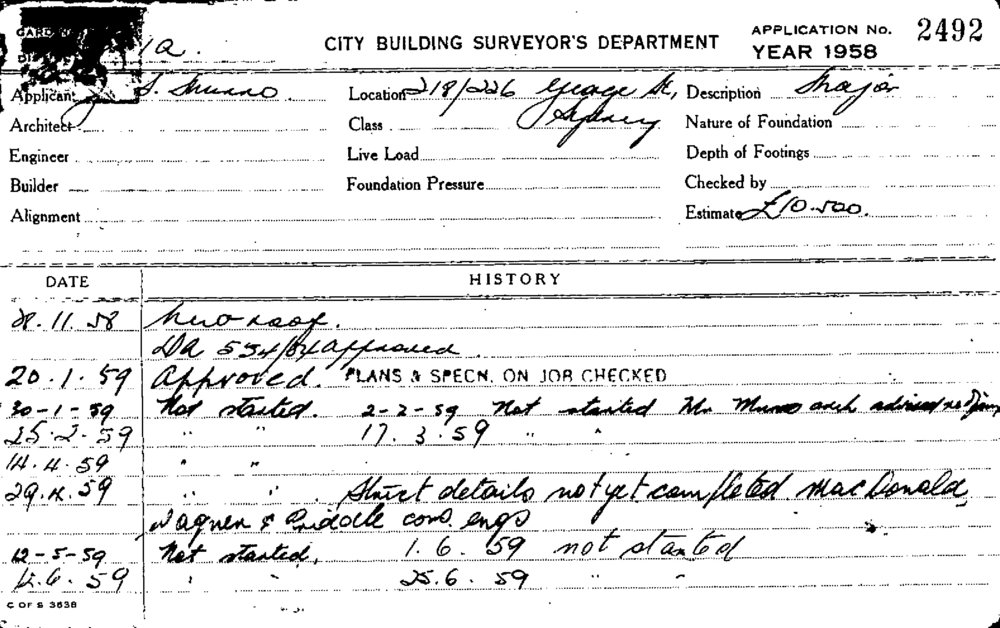 1a. CITY BUILDING SURVEYOR'S DEPARTMENT APPLICATION No. 2492
YEAR 1958
Applicant S. Munro Location 218/226 George St, Description Major
Architect Class Sydney Nature of Foundation
Engineer Live Load Depth of Footings
Builder Foundation Pressure Checked by
Alignment Estimate £10-500.
DATE HISTORY
28.11.58 New roof.
DA 534/54 approved.
20.1.59 Approved. PLANS & SPECN. ON JOB CHECKED
30-1-59 Not started. 2-2-59 Not started Mr Munro arch advised
25.2.59 " " 17.3.59 " "
14.4.59 " "
29.4.59 " " Struct details not yet completed MacDonald,
Wagner & Priddle cons engs
12-5-59 Not started, 1.6.59 not started
12.6.59 " " 25.6.59 " "
C OF S 3638